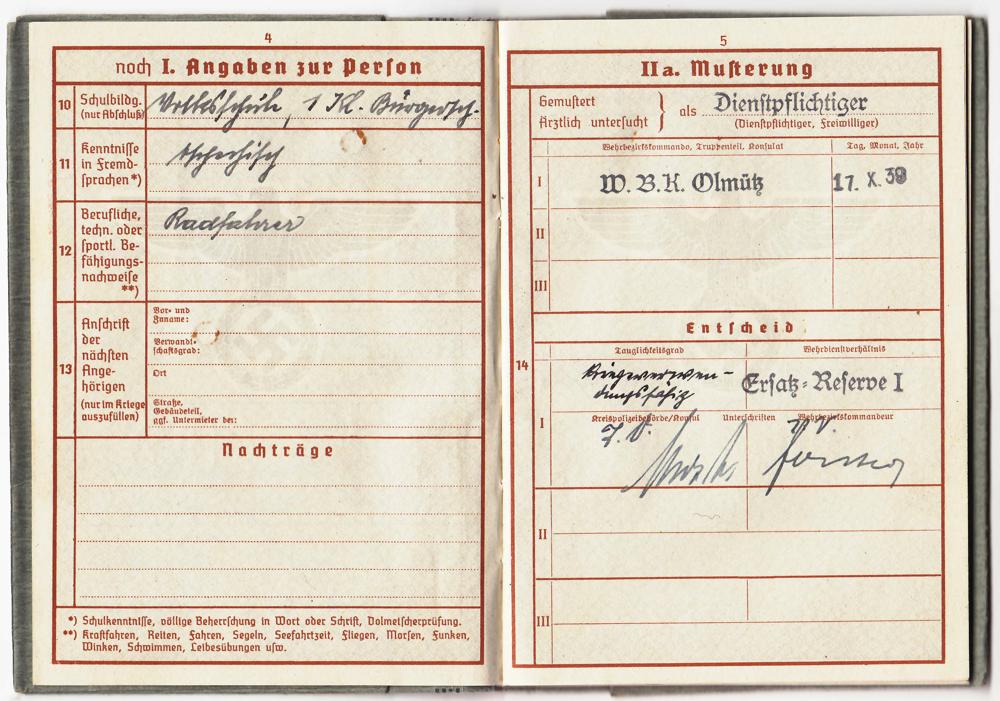 4
noch I. Angaben zur Person
10 Schulbildg. (nur Abschluß)
Volksschule, 1 Kl. Bürgersch.
11 Kenntnisse
in Fremd-
sprachen*)
tschechisch
12 Berufliche,
techn. oder
sportl. Be-
fähigungs-
nachweise
**)
Radfahrer
13 Anschrift
der
nächsten
Ange-
hörigen
(nur im Kriege
auszufüllen)
Vor- und
Zuname:
Verwandt-
schaftsgrad:
Ort
Straße,
Gebäudeteil,
ggf. Untermieter bei:
Nachträge
*) Schulkenntnisse, völlige Beherrschung in Wort oder Schrift, Dolmetscherprüfung.
**) Kraftfahren, Reiten, Fahren, Segeln, Seefahrtzeit, Fliegen, Morsen, Funken,
Winken, Schwimmen, Leibesübungen usw.
5
IIa. Musterung
Gemustert
Ärztlich untersucht } als Dienstpflichtiger
(Dienstpflichtiger, Freiwilliger)
Wehrbezirkskommando, Truppenteil, Konsulat Tag, Monat, Jahr
I W. B. K. Olmütz 17. X. 39
II
III
Entscheid
14
Tauglichkeitsgrad Wehrdienstverhältnis
kriegsverwen-
dungsfähig
Ersatz-Reserve I
I Kreispolizeibehörde/Konsul Unterschriften Wehrbezirkskommandeur
II
III